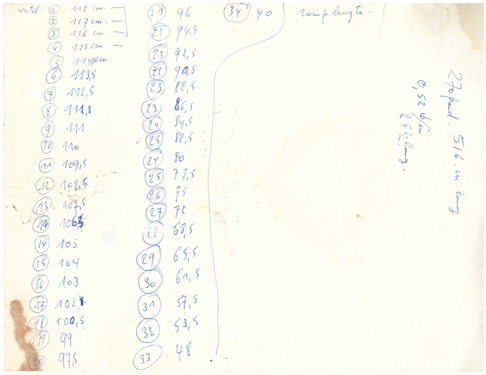 ① 118 cm
② 117 cm
③ 116 cm
④ 115 cm
⑥ 113,5
⑦ 112,5
⑧ 111,5
⑨ 111
⑩ 110
⑪ 109,5
⑫ 108,5
⑬ 107,5
⑭ 106,5
⑭ 105
⑮ 104
⑯ 103
⑰ 102
⑱ 100,5
⑲ 99
⑳ 97,5
㉑ 96
94,5
㉓ 92,5
90,5
㉓ 88,5
㉓ 86,5
㉔ 84,5
㉕ 82,5
㉔ 80
㉕ 77,5
㉖ 75
㉗ 72
68,5
㉙ 65,5
㉚ 61,5
㉛ 57,5
㉜ 53,5
㉝ 48
㉞ 40
romplengte.
516 m lang
0,52